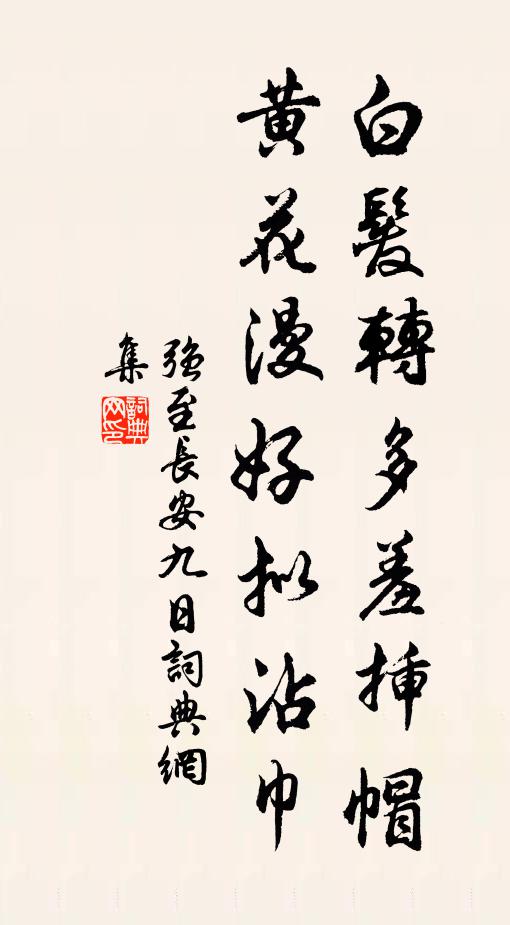 白髮轉多羞挿帽
黃花漫好拟沾巾
強至長安九日詞典網
集
詞典網印